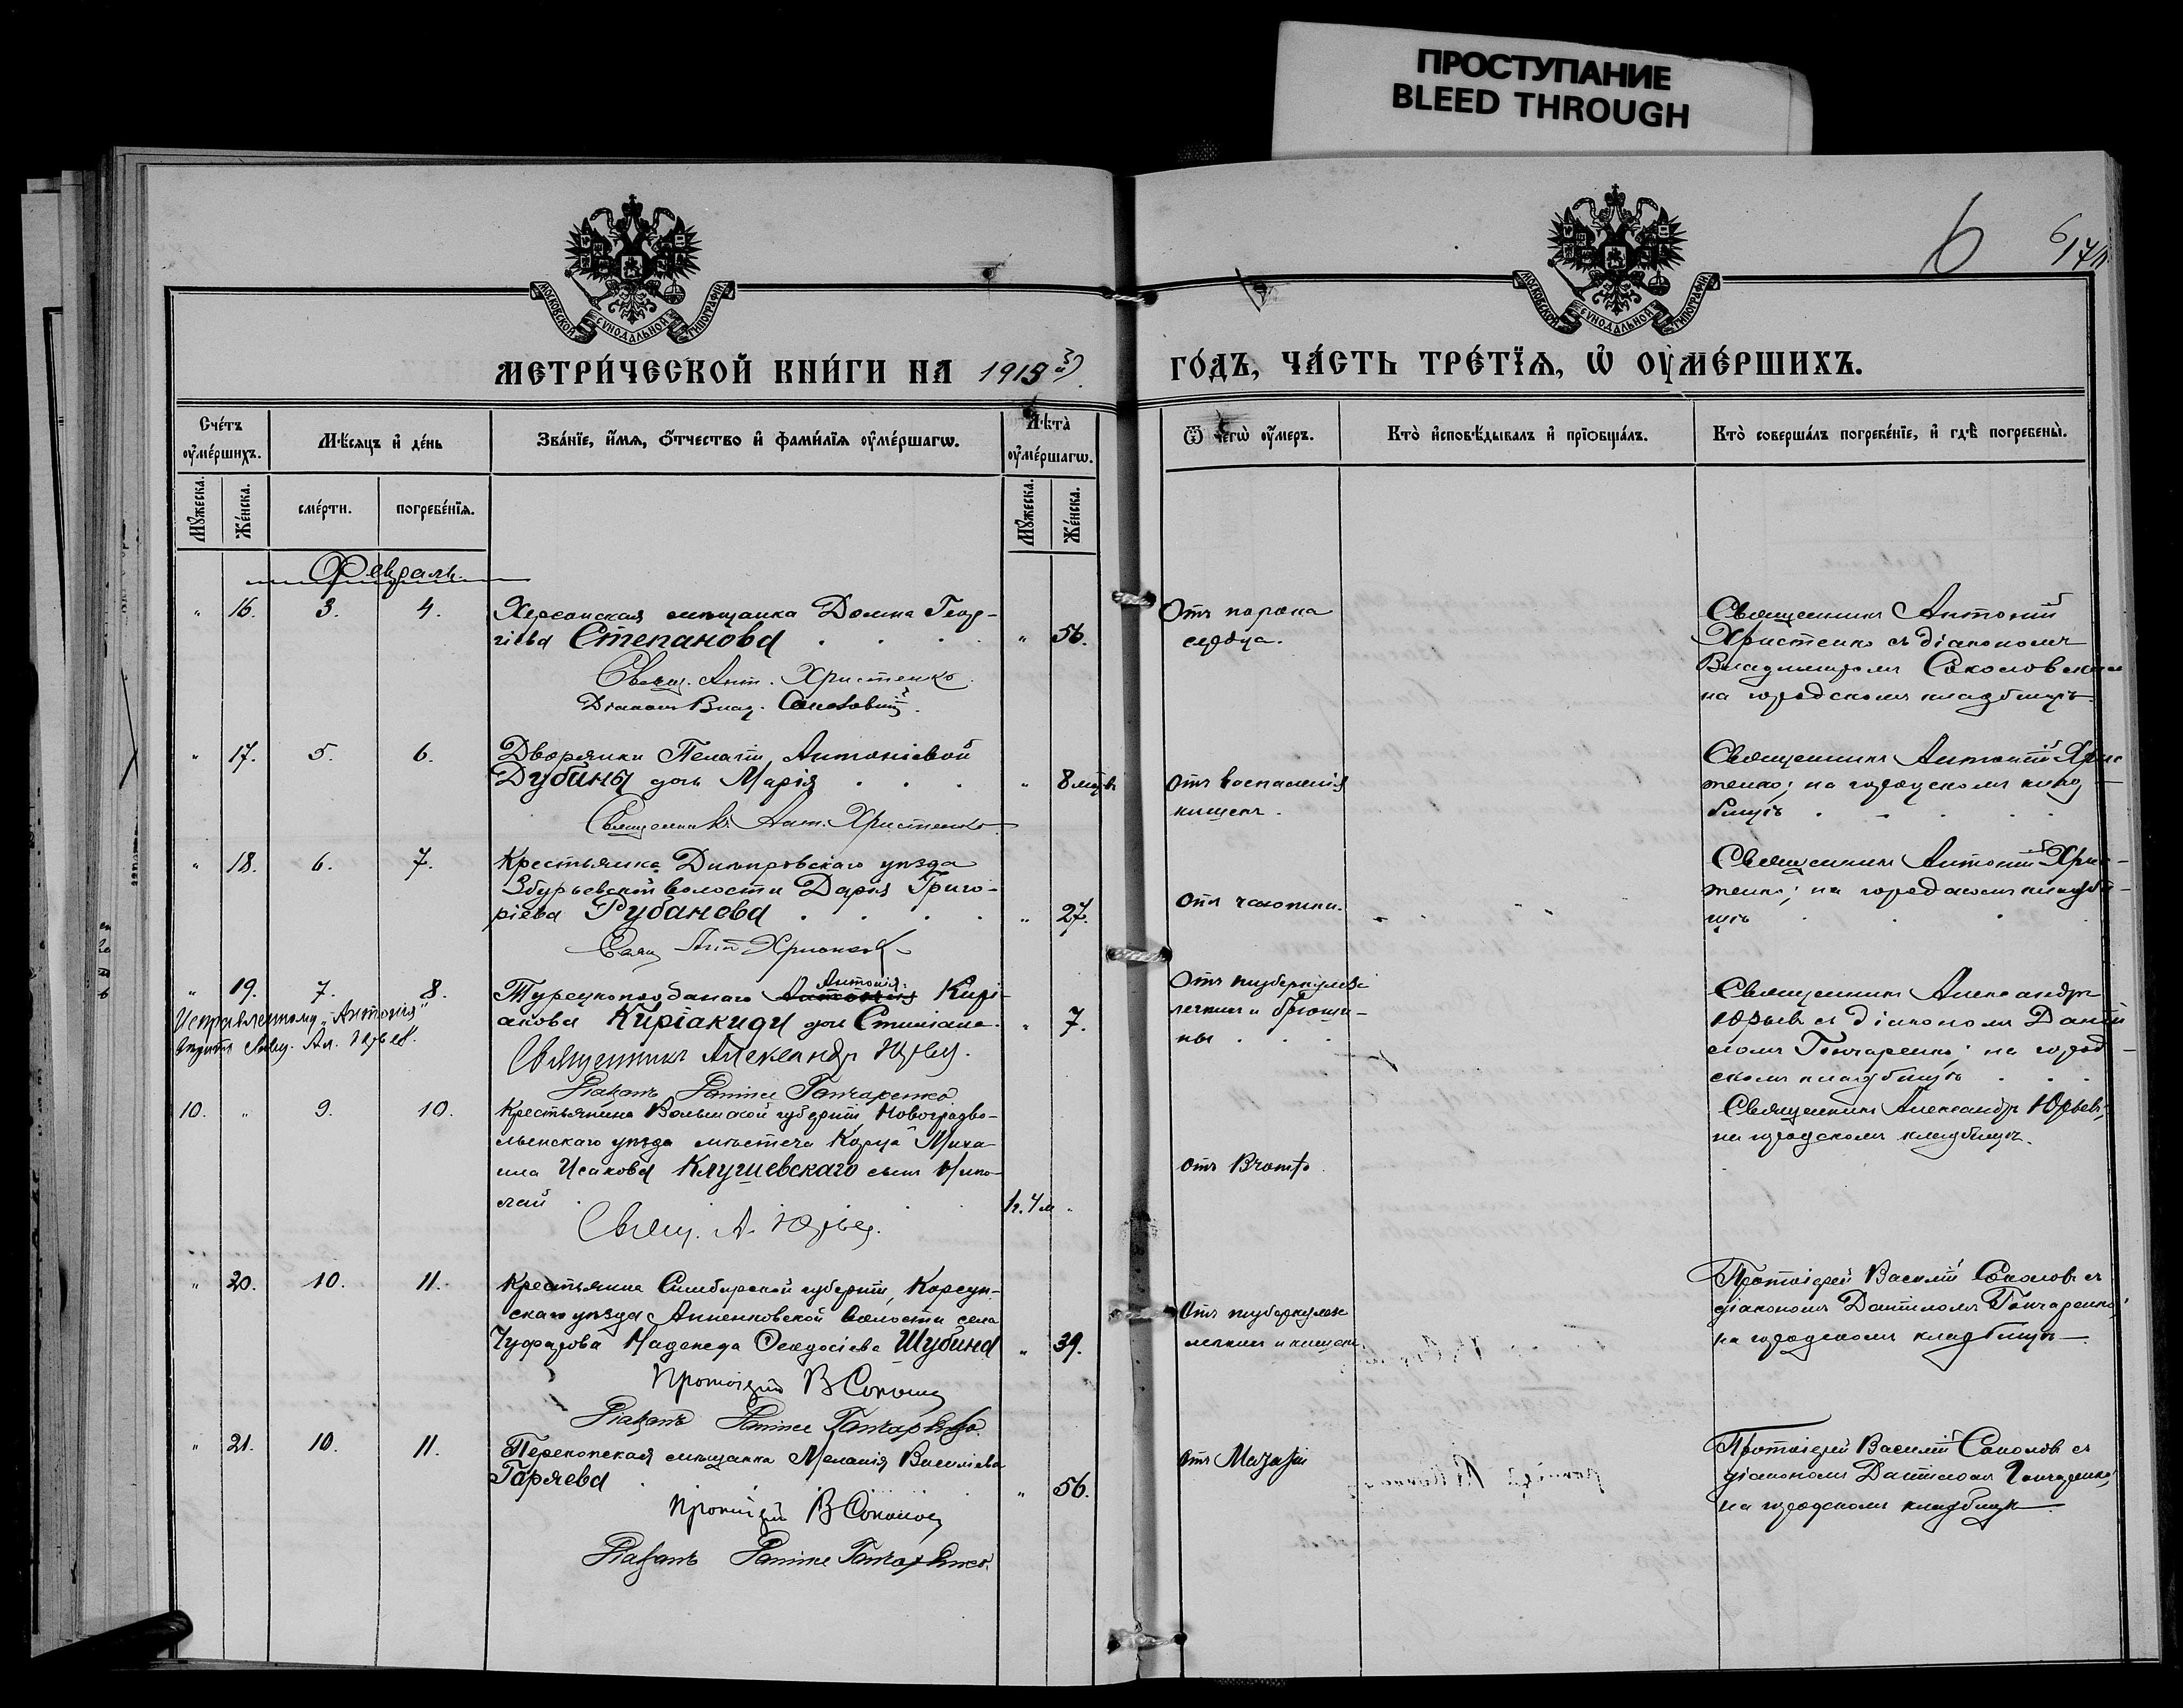 ПРОСТУПАНИЕ
BLEED THROUGH
6
6
МОСКОВСКОЙ СѴНОДАЛЬНОЙ ТИПОГРАФІИ
МОСКОВСКОЙ СѴНОДАЛЬНОЙ ТИПОГРАФІИ
МЕТРИ́ЧЕСКОЙ КНИ́ГИ НА 1913й
ГО́ДЪ, ЧА́СТЬ ТРЕ́ТЇѦ, Ѡ҆ ОУ҆МЕ́РШИХЪ.
Сче́тъ оу҆ме́ршихъ.
Мѣ́сяцъ и҆ де́нь
Зва́нїе, и҆́мѧ, ѻ҆́тчество и҆ фами́лїѧ оу҆ме́ршагѡ.
Лѣ́та оу҆ме́ршагѡ.
Ѿ чегѡ̀ оу҆́меръ.
Кто̀ и҆сповѣ́дывалъ и҆ прїѡбща́лъ.
Кто̀ соверша́лъ погребе́нїе, и҆ гдѣ̀ погребены̀.
Мꙋ́жеска.
Же́нска.
сме́рти.
погребе́нїѧ.
Мꙋ́жеска.
Же́нска.
Февраль.
" 16. 3. 4. Херсонская мѣщанка Домна Геор-
гіева Степанова . . . " 56.
Свящ. Ант. Христенко.
Діаконъ Влад.
Отъ порока
сердца.
Священникъ Антоній
Христенко съ діакономъ
Владиміромъ Соколовскимъ
на городскомъ кладбищѣ.
" 17. 5. 6. Дворянки Пелагіи Антоніевой
Дубины дочь Марія . . . " 8 мѣс.
Священникъ Ант. Христенко
Отъ воспаленія
кишекъ.
Священникъ Антоній Хрис
тенко; на городскомъ клад
бищѣ . . . .
" 18. 6. 7. Крестьянка Днѣпровскаго уѣзда
Збурьевской волости Дарія Григо-
ріева Рубанова . . . . " 27.
Свящ Ант Христенко
Отъ чахотки.
Священникъ Антоній Хрис-
тенко; на городскомъ кладби-
щѣ . . .
" 19. 7. 8. Турецкоподданаго Антонія Кирі-
акова Киріакиди дочь . " 7.
Исправленному „Антонія"
вѣрить Свящ. Ал. Юрьевъ.
Священникъ Александръ Юрьевъ.
Діаконъ Даніилъ Гончаренко
Отъ туберкулеза
легкихъ и брюши-
ны . . .
Священникъ Александръ
Юрьевъ съ діакономъ Дані
иломъ Гончаренко; на город-
скомъ кладбищѣ . . .
10. " 9. 10. Крестьянина Волынской губерніи, Новоградво-
лынскаго уѣзда мѣстеча Корца Миха-
ила Исакова Клушевскаго сынъ Нико-
лай . . . 1 г. 4 м "
Свящ. А. Юрьевъ.
Отъ
Священникъ Александръ Юрьевъ;
на городскомъ кладбищѣ.
" 20. 10. 11. Крестьянка Симбирской губерніи, Корсун-
скаго уѣзда Анненковской волости села
Чуфарова Надежда Ѳеодосіева Шубина " 39.
Протоіерей В Соколовъ
Діаконъ Даніилъ Гончаренко.
Отъ туберкулеза
легкихъ и кишекъ.
Протоіерей Василій Соколовъ съ
діакономъ Даніиломъ Гончаренко;
на городскомъ кладбищѣ
" 21. 10. 11. Перекопская мѣщанка Меланія Василіева
Горяева . . . " 56.
Протоіерей В Соколовъ
Діаконъ Даніилъ Гончаренко.
Отъ
Протоіерей Василій Соколовъ съ
діакономъ Даніиломъ Гончаренко;
на городскомъ кладбищѣ